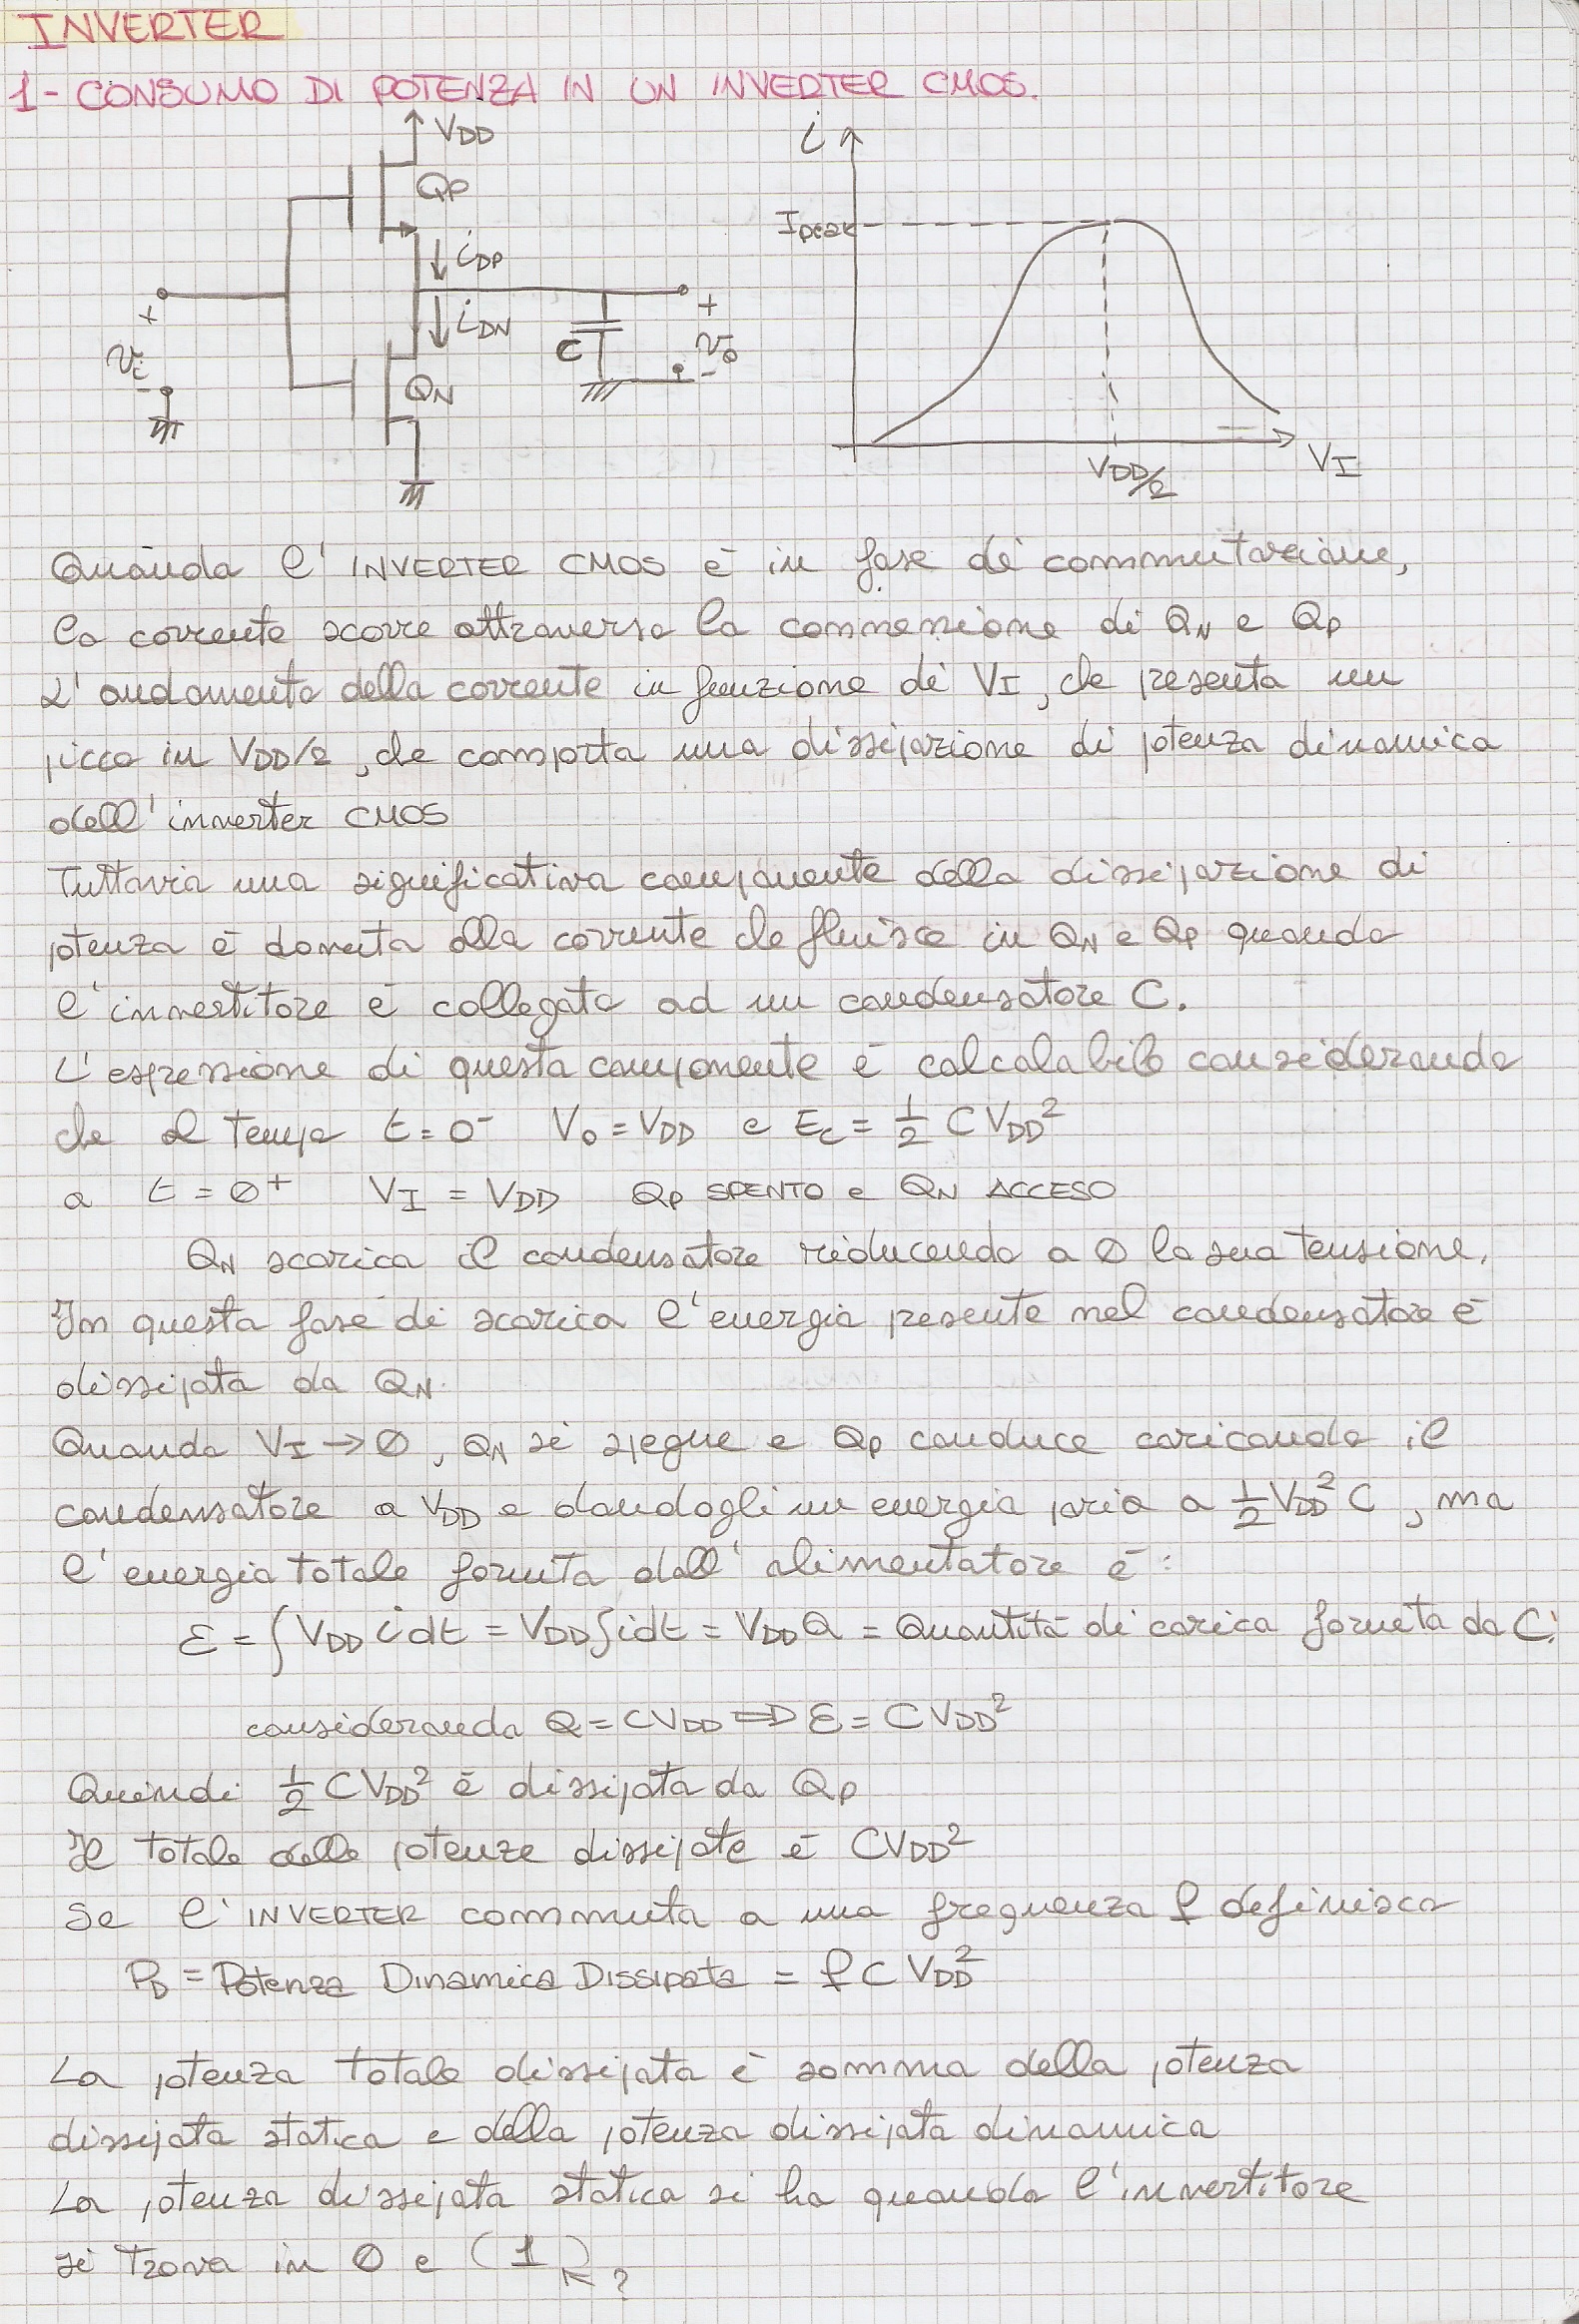 INVERTER
1- CONSUMO DI POTENZA IN UN INVERTER CMOS.
VDD
QP
iDP
iDN
+
vi
-
QN
C
+
vo
-
i
Ipeak
VDD/2
VI
Quando l'INVERTER CMOS è in fase di commutazione,
la corrente scorre attraverso la connessione di QN e QP
L'andamento della corrente in funzione di VI, che presenta un
picco in VDD/2, che comporta una dissipazione di potenza dinamica
dell'inverter CMOS
Tuttavia una significativa componente della dissipazione di
potenza è dovuta alla corrente che fluisce in QN e QP quando
l'invertitore è collegato ad un condensatore C.
L'espressione di questa componente è calcolabile considerando
che al tempo t=0⁻ Vo=VDD e Ec= 1/2 CVDD²
a t=0⁺ VI = VDD QP SPENTO e QN ACCESO
QN scarica il condensatore riducendo a 0 la sua tensione.
In questa fase di scarica l'energia presente nel condensatore è
dissipata da QN.
Quando VI→0, QN si spegne e QP conduce caricando il
condensatore a VDD e dandogli un energia paria a 1/2 VDD² C, ma
l'energia totale fornita dall'alimentatore è:
ℰ = ∫ VDD i dt = VDD ∫ i dt = VDD Q = Quantità di carica fornita da C!
considerando Q = CVDD ⇒ ℰ = CVDD²
Quindi 1/2 CVDD² è dissipata da QP
Il totale delle potenze dissipate è CVDD²
Se l'INVERTER commuta a una frequenza f definisco
PD = Potenza Dinamica Dissipata = f C VDD²
La potenza totale dissipata è somma della potenza
dissipata statica e della potenza dissipata dinamica
La potenza dissipata statica si ha quando l'invertitore
si trova in 0 e (1) ?